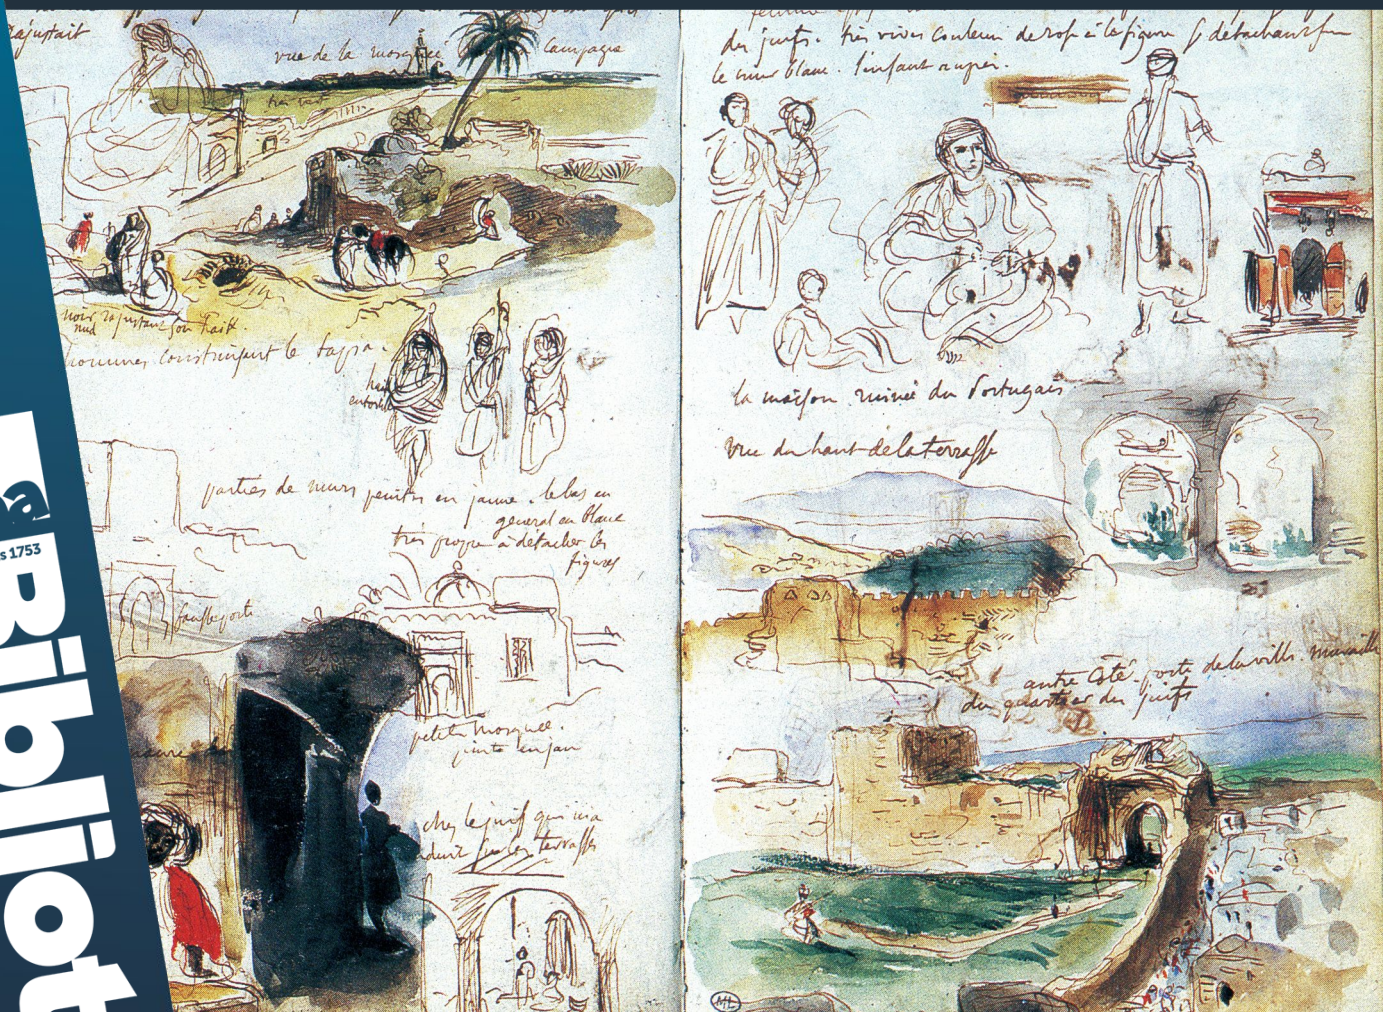 rajustait
vue de la mosquée la campagne
très vert
noir rajustant son haïk.
nud
hommes construisant le tapia.
entortillé
parties de murs peintes en jaune. le bas en
général en blanc
très propre à détacher les
figures
fausse porte
petite mosquée.
peinte en jaune
chez le juif qui m'a
conduit sur les terrasses
des juifs. très vives couleurs de rose à la figure se détachant sur
le mur blanc. l'enfant auprès.
la maison ruinée du Portugais
vue du haut de la terrasse
autre côté. porte de la ville. muraille
du quartier des juifs
ML
la
s 1753
Bibliot